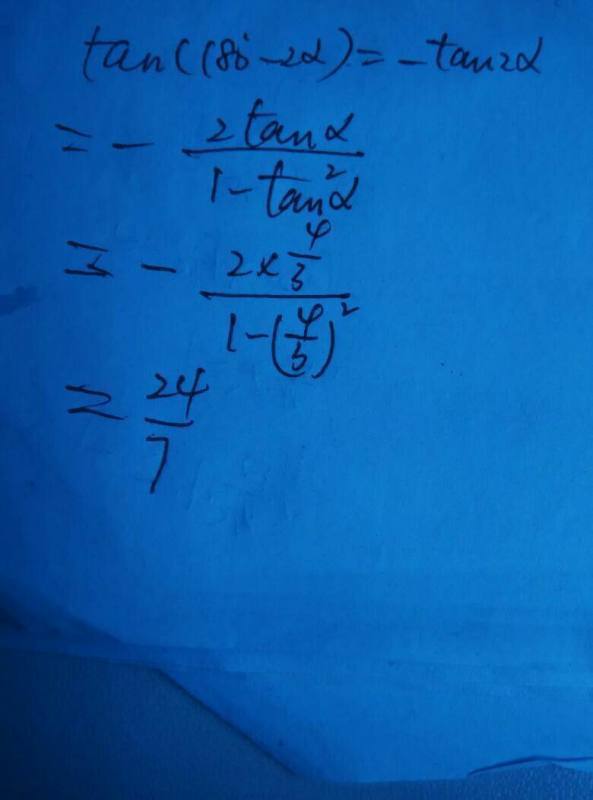 tan(180°-2α)=-tan2α
=-\frac{2tanα}{1-tan²α}
=-\frac{2×\frac{4}{3}}{1-(\frac{4}{3})²}
=\frac{24}{7}